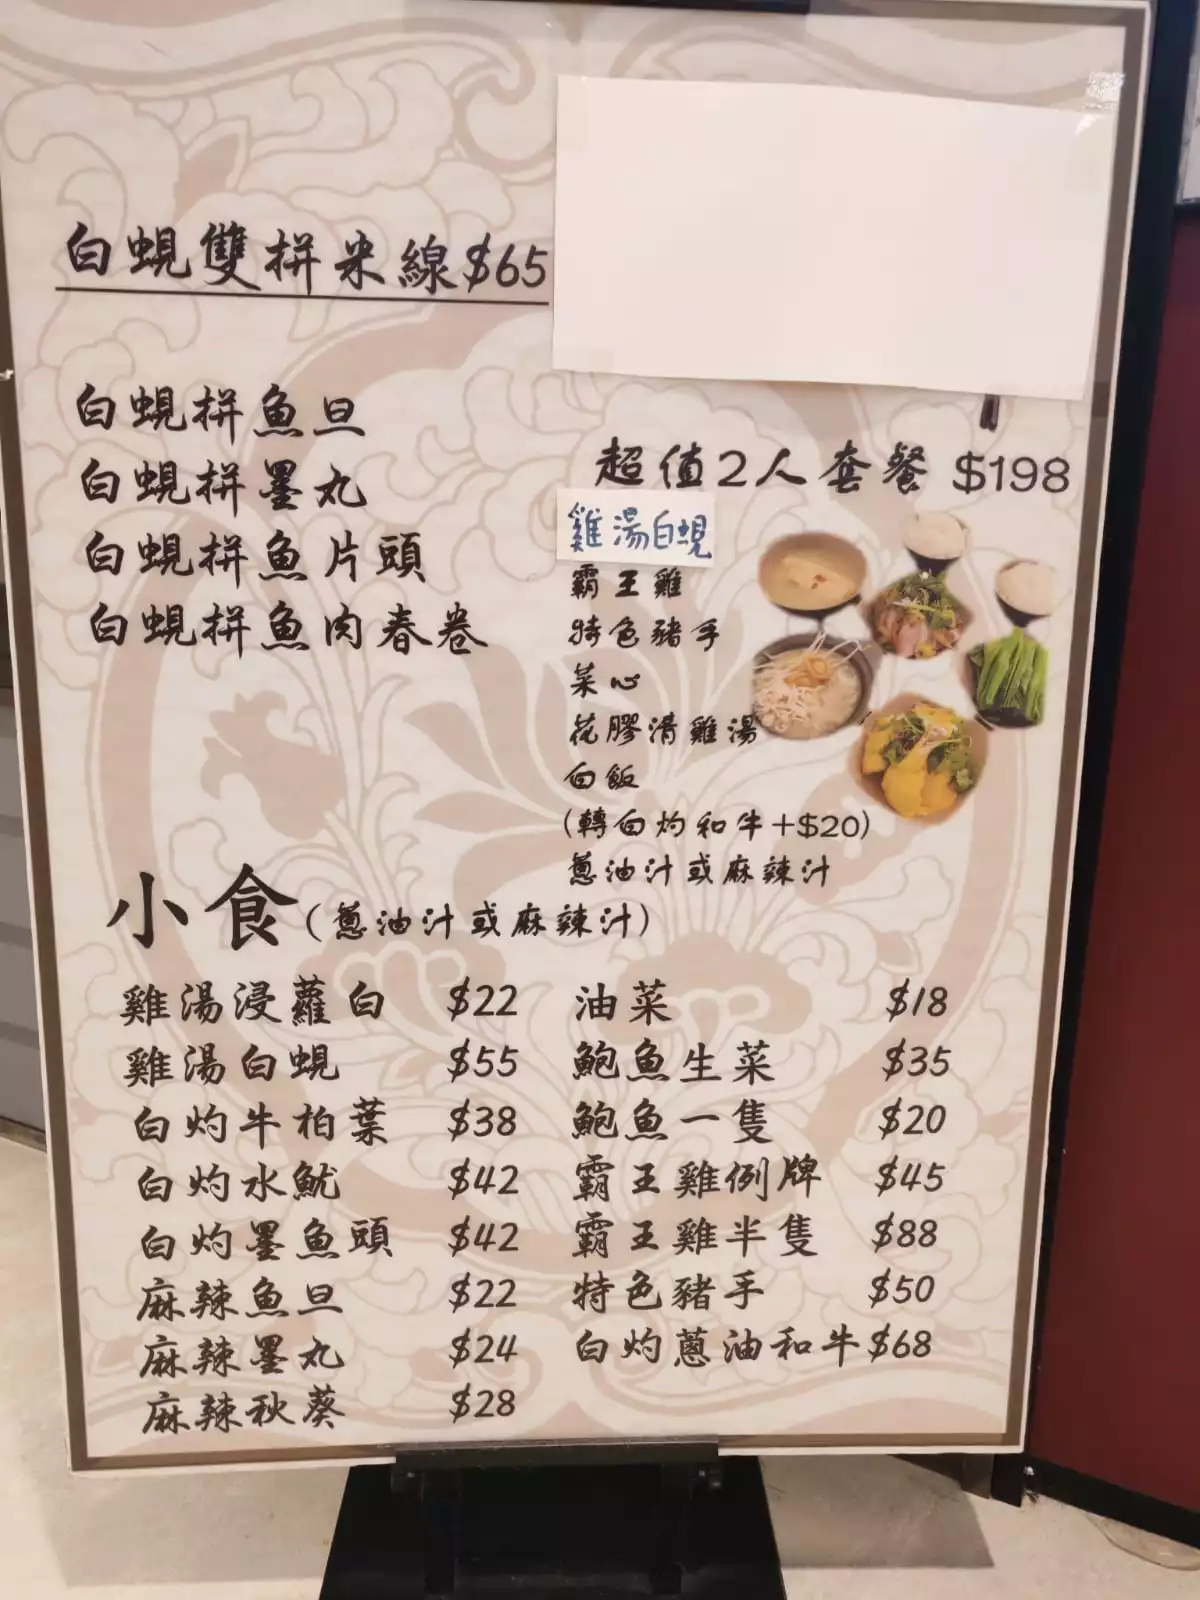 白蜆雙拼米線$65
白蜆拼魚旦
白蜆拼墨丸
白蜆拼魚片頭
白蜆拼魚肉春卷
超值2人套餐 $198
雞湯白蜆
霸王雞
特色豬手
菜心
花膠清雞湯
白飯
(轉白灼和牛+$20)
蔥油汁或麻辣汁
小食(蔥油汁或麻辣汁)
雞湯浸蘿白 $22
雞湯白蜆 $55
白灼牛柏葉 $38
白灼水魷 $42
白灼墨魚頭 $42
麻辣魚旦 $22
麻辣墨丸 $24
麻辣秋葵 $28
油菜 $18
鮑魚生菜 $35
鮑魚一隻 $20
霸王雞例牌 $45
霸王雞半隻 $88
特色豬手 $50
白灼蔥油和牛$68